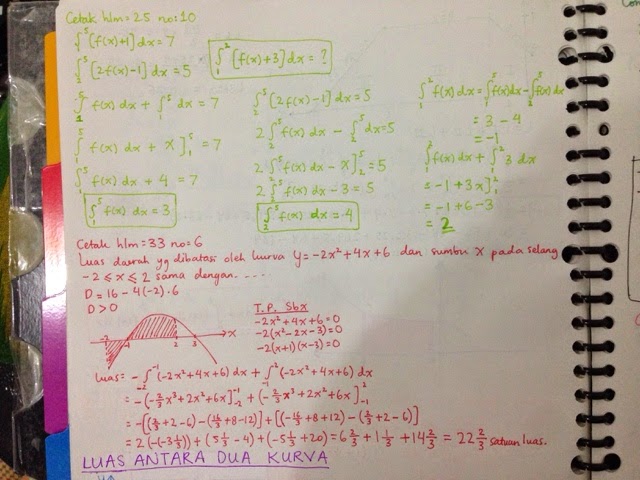 Cetak hlm=25 no:10
∫₁⁵ [f(x)+1] dx = 7
∫₂⁵ [2f(x)-1] dx = 5
∫₁² [f(x)+3] dx = ?
∫₁⁵ f(x) dx + ∫₁⁵ dx = 7
∫₁⁵ f(x) dx + x]₁⁵ = 7
∫₁⁵ f(x) dx + 4 = 7
∫₁⁵ f(x) dx = 3
∫₂⁵ [2f(x)-1] dx = 5
2 ∫₂⁵ f(x) dx - ∫₂⁵ dx = 5
2 ∫₂⁵ f(x) dx - x]₂⁵ = 5
2 ∫₂⁵ f(x) dx - 3 = 5
∫₂⁵ f(x) dx = 4
∫₁² f(x) dx = ∫₁⁵ f(x) dx - ∫₂⁵ f(x) dx
= 3 - 4
= -1
∫₁² f(x) dx + ∫₁² 3 dx
= -1 + 3x]₁²
= -1 + 6 - 3
= 2
Cetak hlm=33 no=6
Luas daerah yg dibatasi oleh kurva y = -2x² + 4x + 6 dan sumbu x pada selang
-2 ≤ x ≤ 2 sama dengan....
D = 16 - 4(-2).6
D > 0
-2 -1 2 3 x
T.P. Sbx
-2x² + 4x + 6 = 0
-2(x² - 2x - 3) = 0
-2(x+1)(x-3) = 0
Luas = - ∫₋₂⁻¹ (-2x² + 4x + 6) dx + ∫₋₁² (-2x² + 4x + 6) dx
= -(-⅔x³ + 2x² + 6x]₋₂⁻¹ + (-⅔x³ + 2x² + 6x]₋₁²
= -[(⅔+2-6) - (16/3+8-12)] + [(-16/3+8+12) - (⅔+2-6)]
= 6⅔ + 1⅓ + 14⅔ = 22⅔ satuan luas.
LUAS ANTARA DUA KURVA